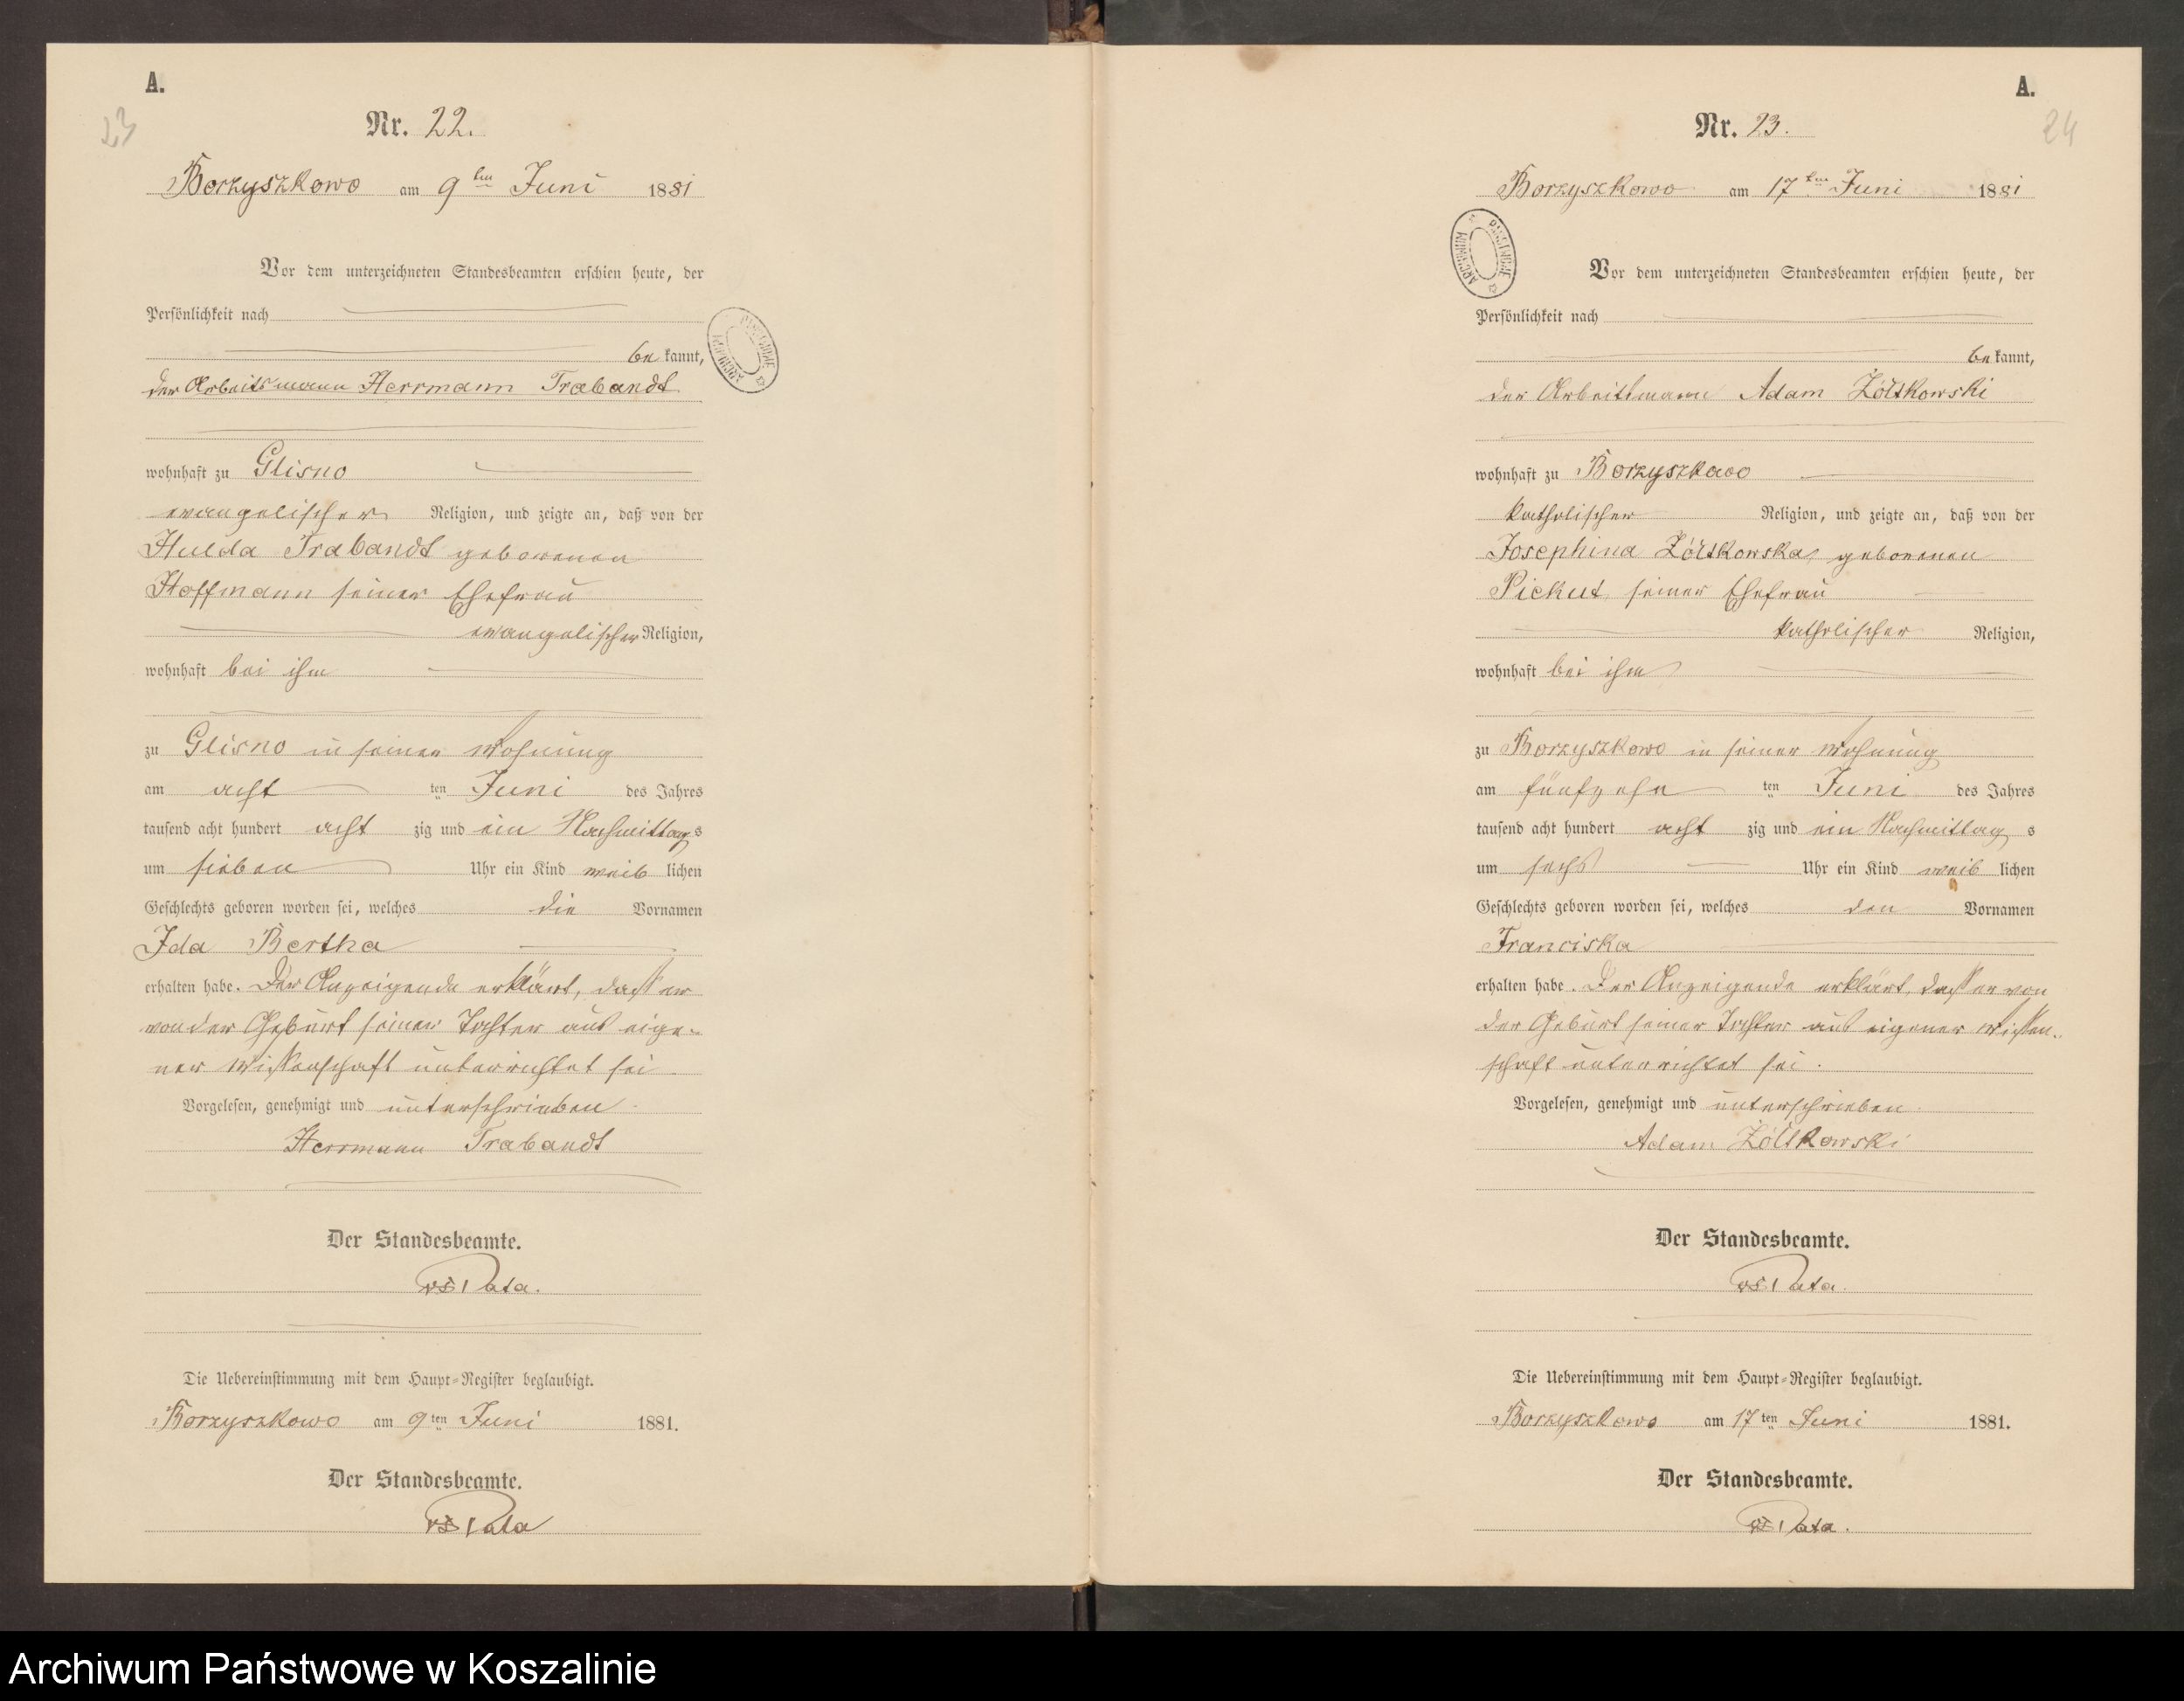 A.
23
Nr. 22.
Borzyszkowo am 9ten Juni 1881
Vor dem unterzeichneten Standesbeamten erschien heute, der
Persönlichkeit nach
bekannt,
der Arbeitsmann Herrmann Trabandt
wohnhaft zu Glisno
evangelischer Religion, und zeigte an, daß von der
Hulda Trabandt geborenen
Hoffmann seiner Ehefrau
evangelischer Religion,
wohnhaft bei ihm
zu Glisno in seiner Wohnung
am acht ten Juni des Jahres
tausend acht hundert acht zig und ein Nachmittags
um sieben Uhr ein Kind weib lichen
Geschlechts geboren worden sei, welches die Vornamen
Ida Bertha
erhalten habe. Der Anzeigende erklärt, daß er
von der Geburt seiner Tochter aus eige-
ner Wissenschaft unterrichtet sei.
Vorgelesen, genehmigt und unterschrieben.
Herrmann Trabandt
Der Standesbeamte.
Die Uebereinstimmung mit dem Haupt-Register beglaubigt.
Borzyszkowo am 9ten Juni 1881.
Der Standesbeamte.
A.
24
Nr. 23.
Borzyszkowo am 17ten Juni 1881
ARCHIWUM PAŃSTWOWE
Vor dem unterzeichneten Standesbeamten erschien heute, der
Persönlichkeit nach
bekannt,
der Arbeitsmann Adam Żółtkowski
wohnhaft zu Borzyszkowo
katholischer Religion, und zeigte an, daß von der
Josephina Żółtkowska, geborenen
Piekut, seiner Ehefrau
katholischer Religion,
wohnhaft bei ihm
zu Borzyszkowo in seiner Wohnung
am fünfzehn ten Juni des Jahres
tausend acht hundert acht zig und ein Nachmittag s
um sechs Uhr ein Kind weib lichen
Geschlechts geboren worden sei, welches den Vornamen
Franciska
erhalten habe. Der Anzeigende erklärt, daß er von
der Geburt seiner Tochter aus eigener Wissen-
schaft unterrichtet sei.
Vorgelesen, genehmigt und unterschrieben.
Adam Żółtkowski
Der Standesbeamte.
Die Uebereinstimmung mit dem Haupt-Register beglaubigt.
Borzyszkowo am 17ten Juni 1881.
Der Standesbeamte.
Archiwum Państwowe w Koszalinie